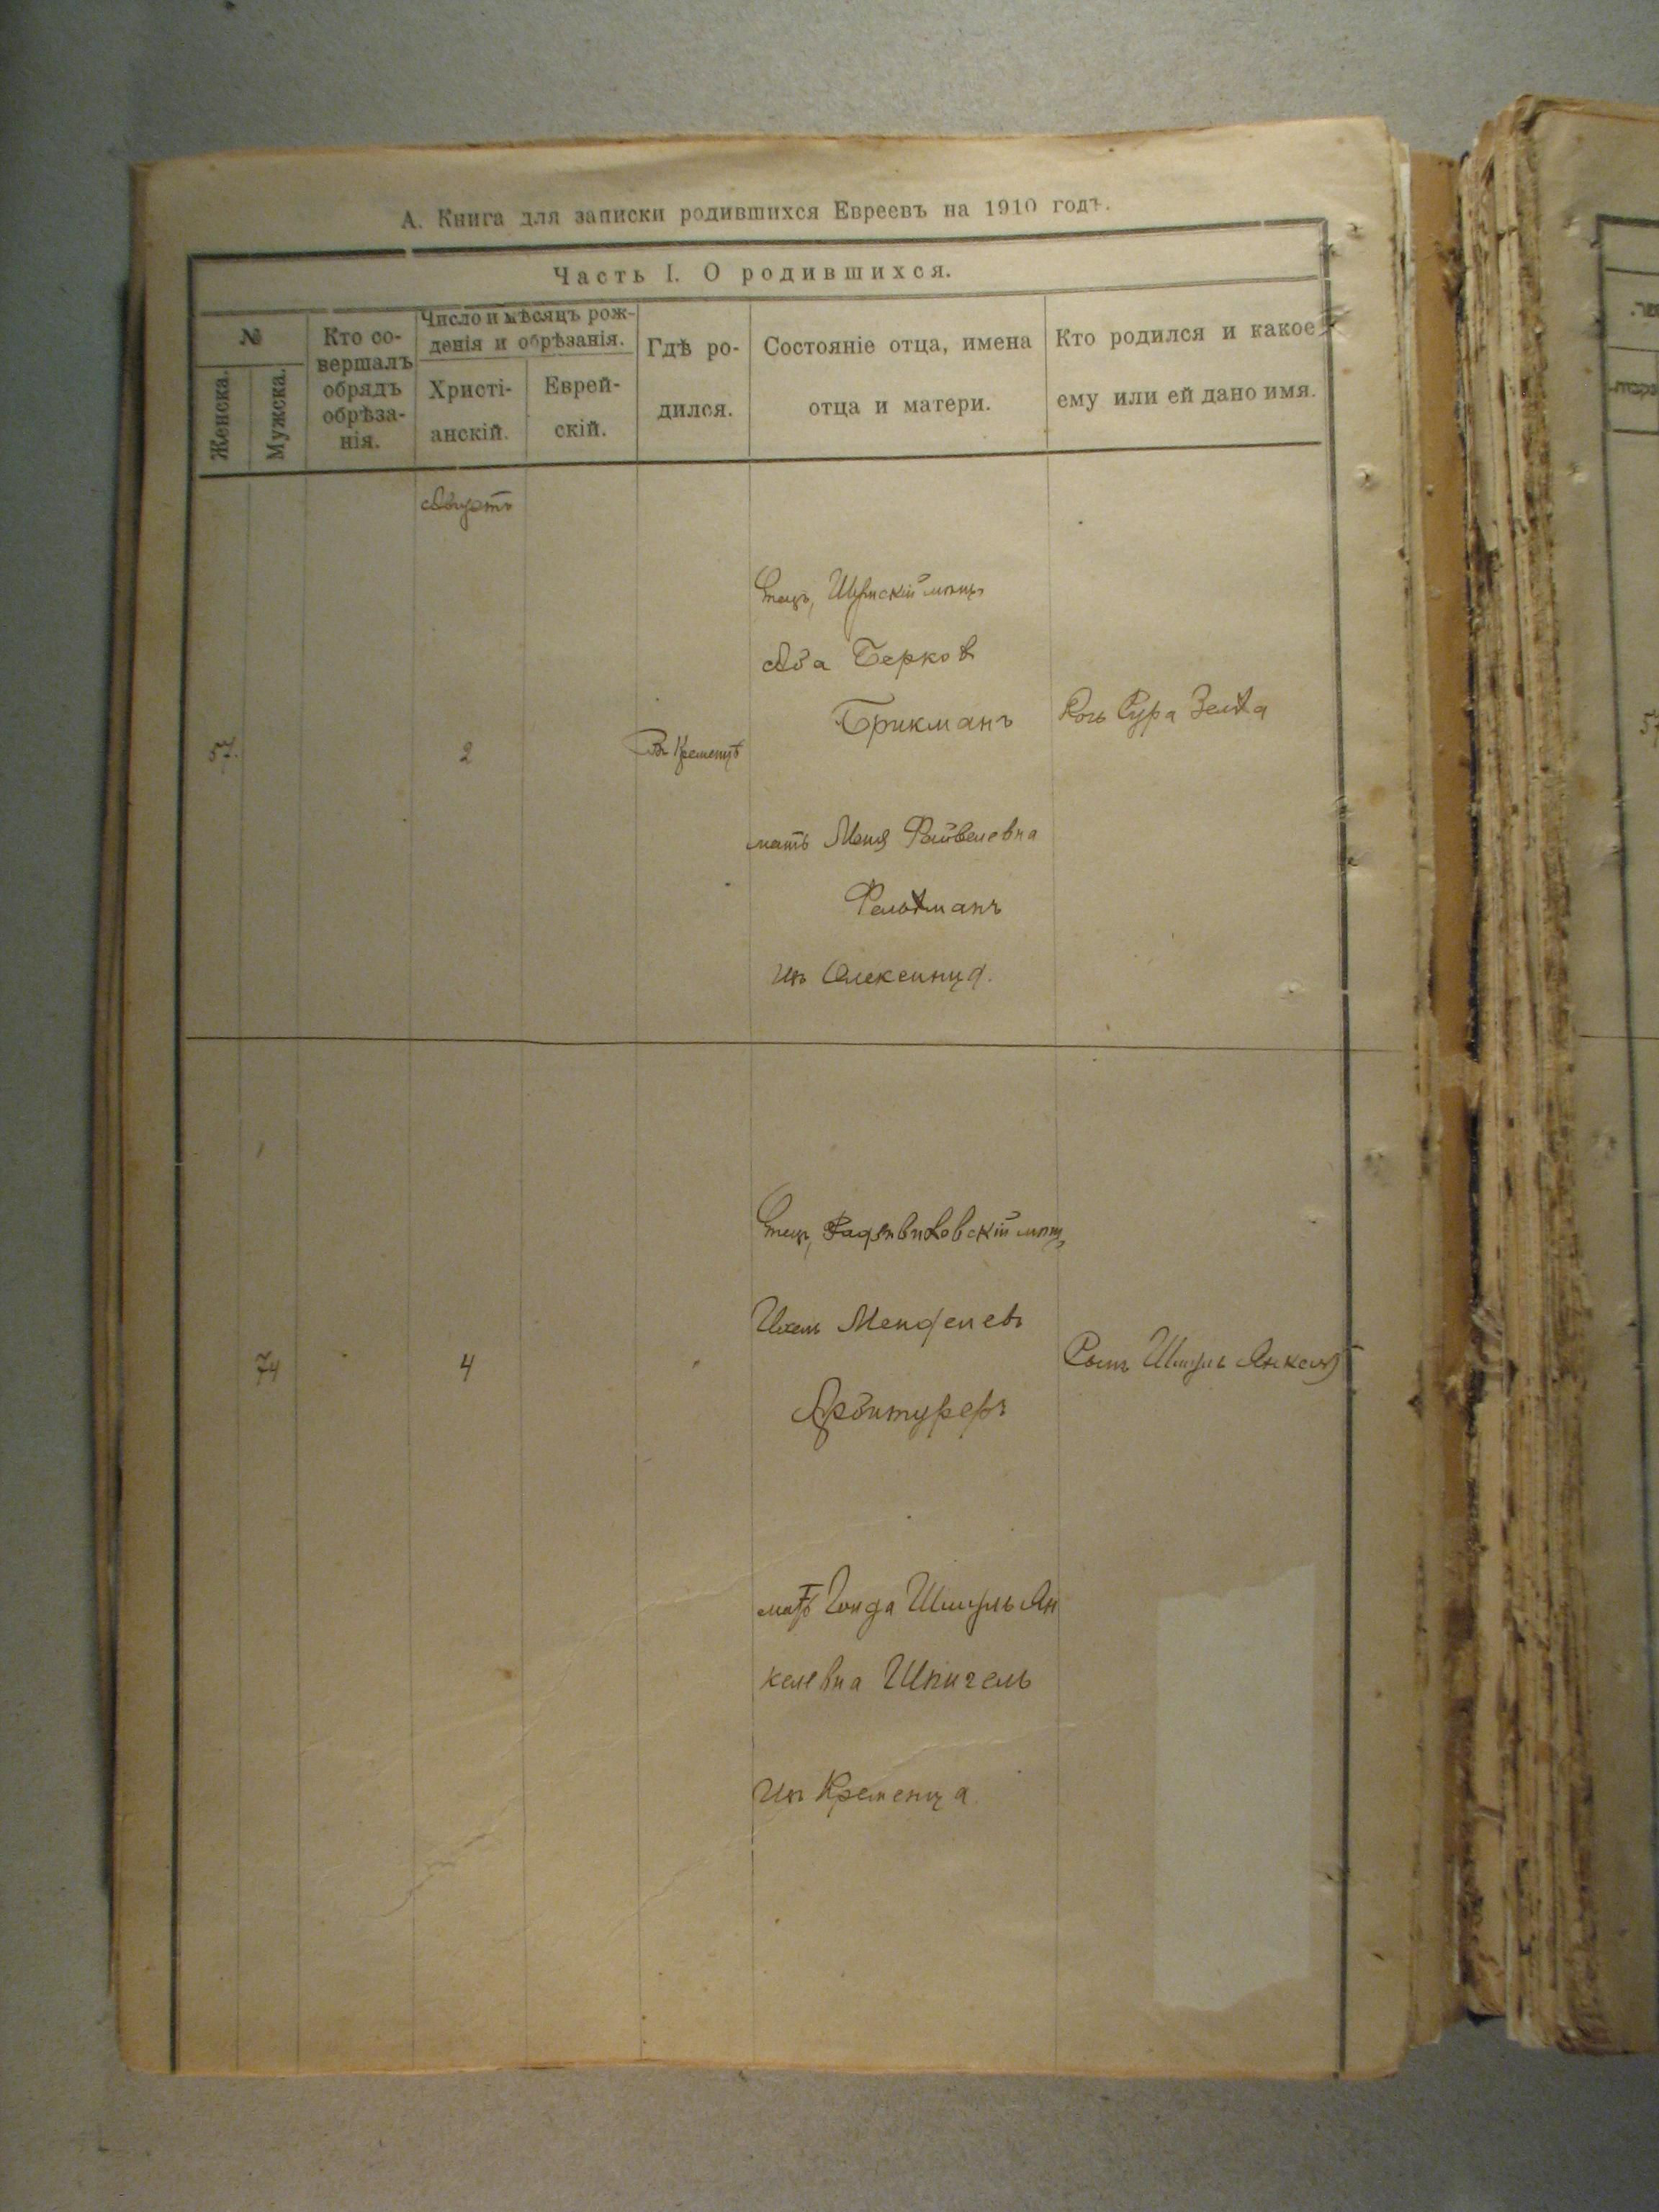 А. Книга для записки родившихся Евреевъ на 1910 годъ.
Часть I. О родившихся.
№
Женска.
Мужска.
Кто со-
вершалъ
обрядъ
обрѣза-
нія.
Число и мѣсяцъ рож-
денія и обрѣзанія.
Христі-
анскій.
Еврей-
скій.
Гдѣ ро-
дился.
Состояніе отца, имена
отца и матери.
Кто родился и какое
ему или ей дано имя.
Августъ
57.
2
Въ Кременцѣ
Отецъ, Шумскій мѣщ.
Аба Берков
Брикманъ
мать Меня Файвелевна
Фельдманъ
изъ Олексинца.
Дочь Сура Зелда
74
4
Отецъ, Радзивиловскій мѣщ.
Ихель Менделевъ
Арбитуреръ
мать Голда Шмуль Ян
келевна Шпигель
изъ Кременца.
Сынъ Шмуль Янкель